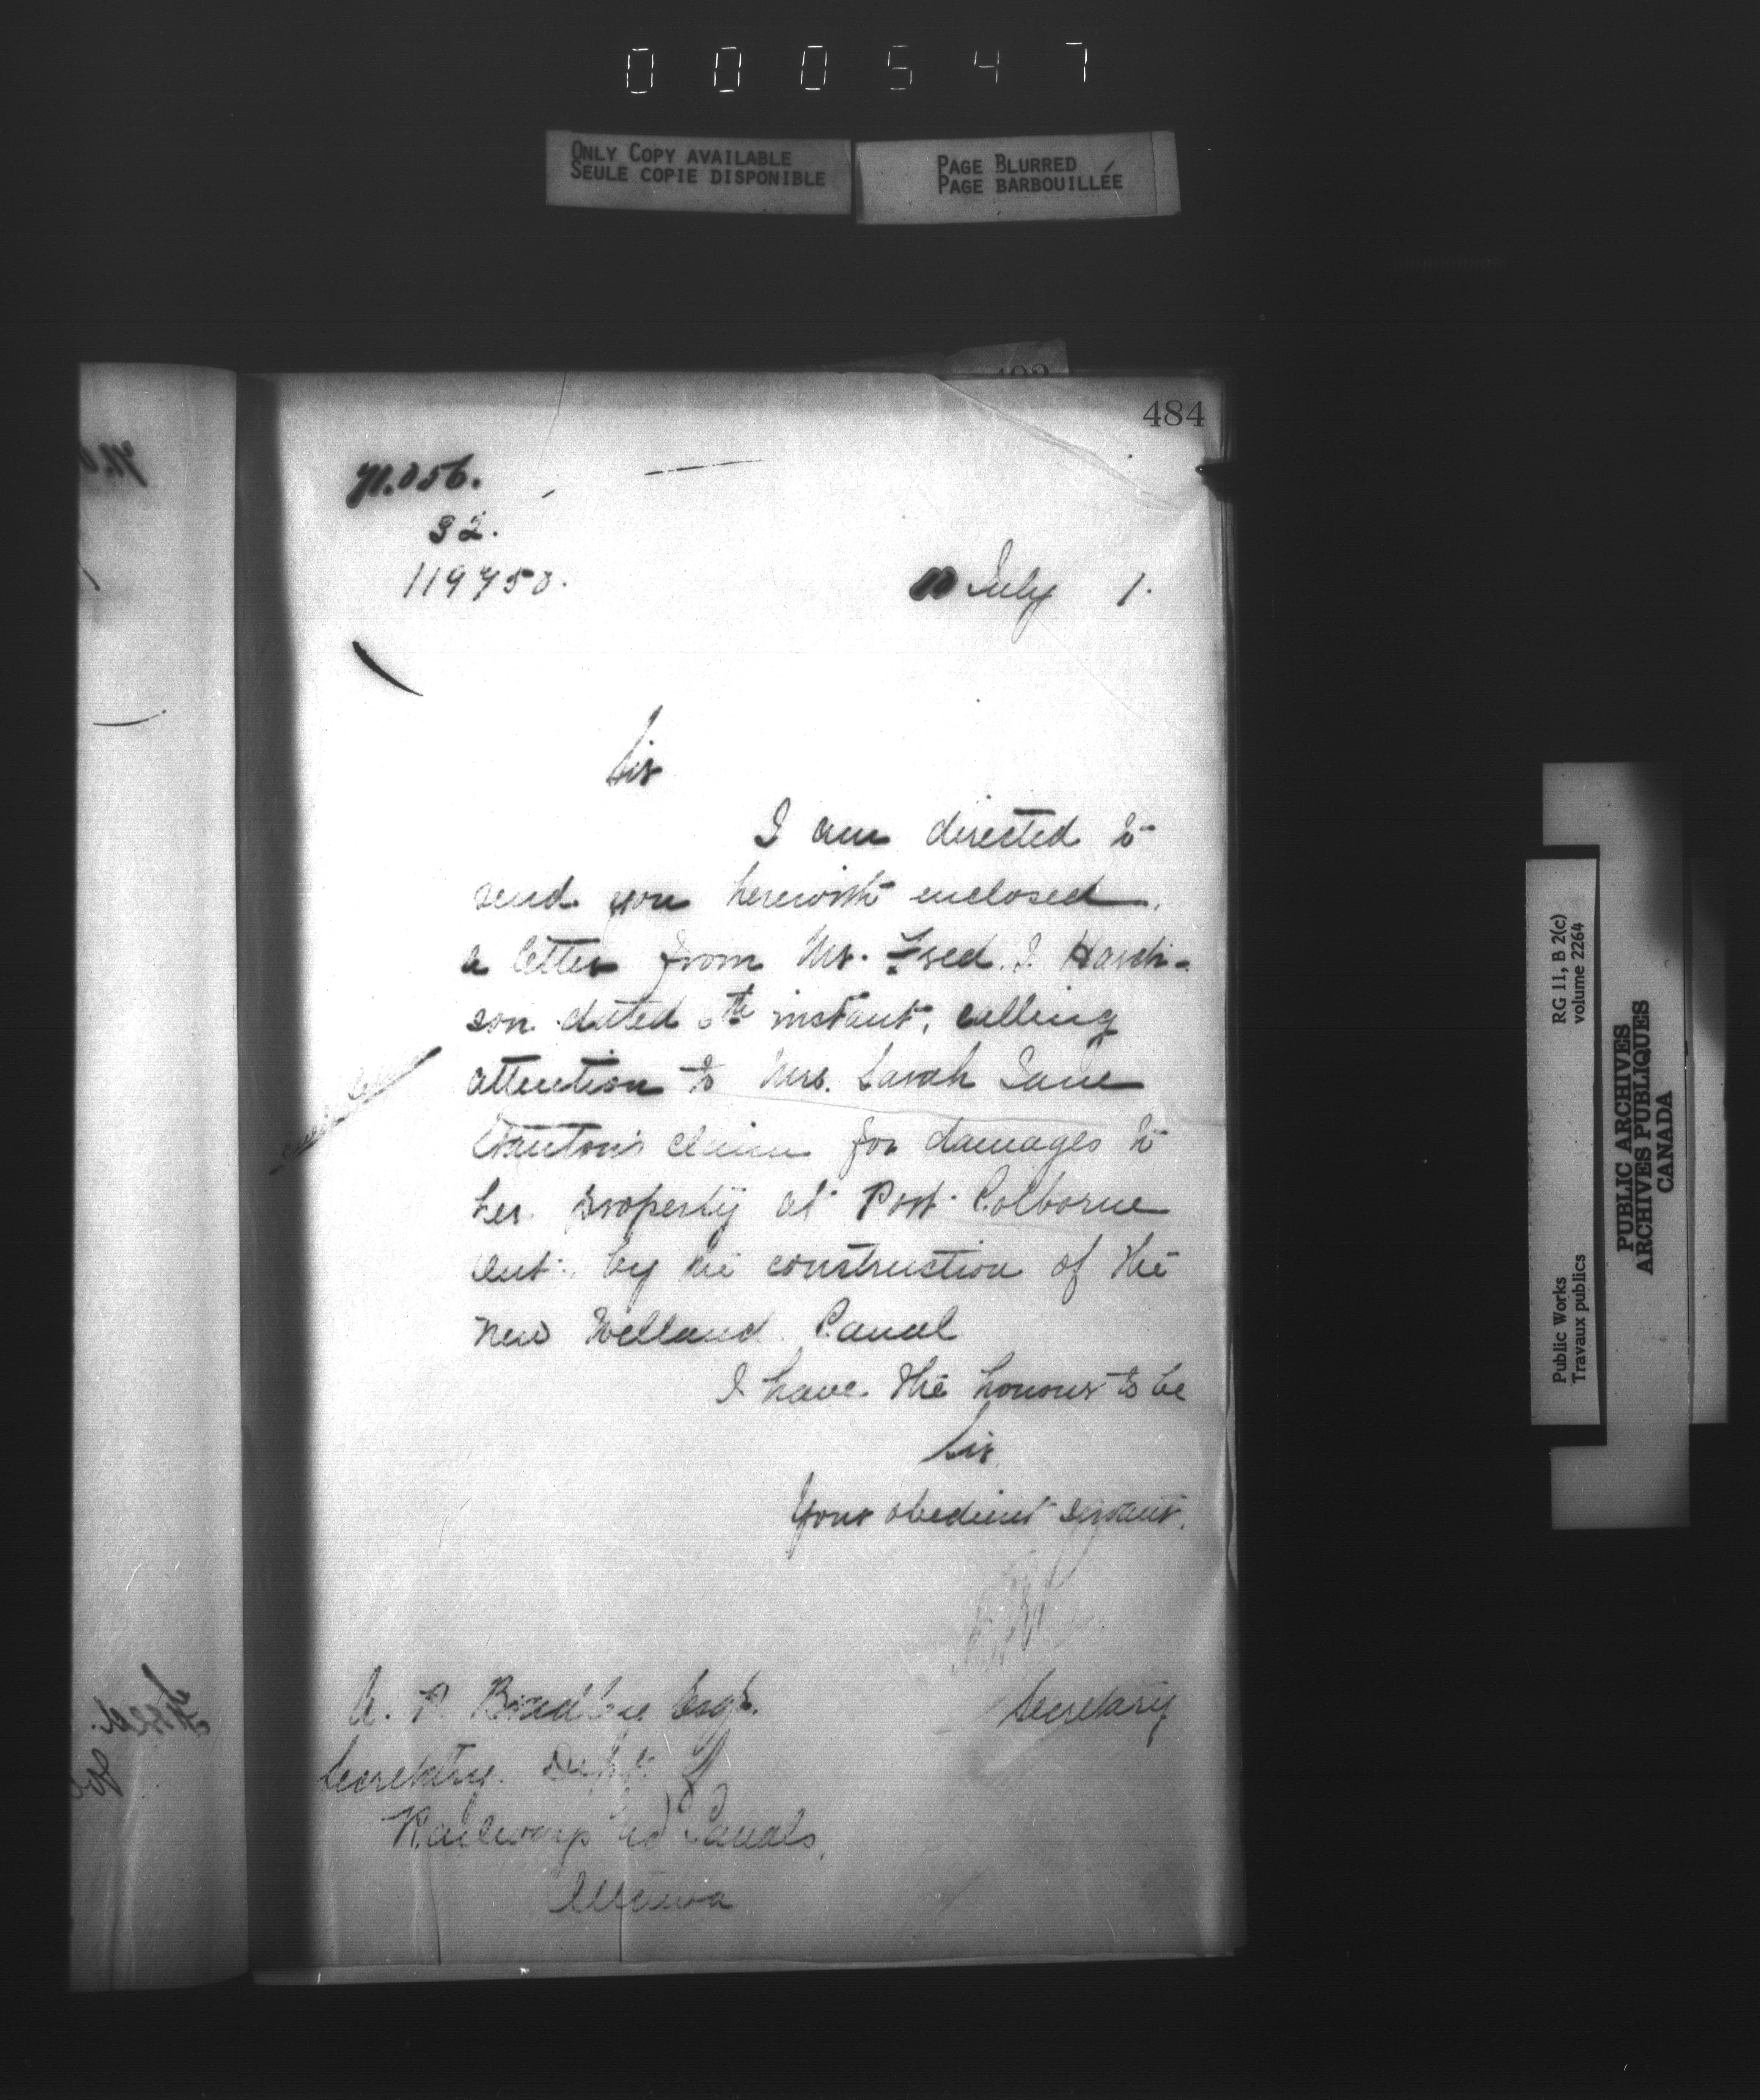 000547
ONLY COPY AVAILABLE
SEULE COPIE DISPONIBLE
PAGE BLURRED
PAGE BARBOUILLÉE
484
71.056.
32.
119750.
10 July 1.
Sir
I am directed to
send you herewith enclosed.
a letter from Mr. Fred. J.
son dated instant, calling
attention to Mrs. Sarah Jane
claim for damages to
her property at Port Colborne
Ont. by the construction of the
new Welland Canal
I have the honour to be
Sir
Your obedient servant.
Secretary
A. P. Bradley Esqr.
Secretary Dept. of
Railways and Canals.
Ottawa
RG 11, B 2(c)
volume 2264
Public Works
Travaux publics
PUBLIC ARCHIVES
ARCHIVES PUBLIQUES
CANADA